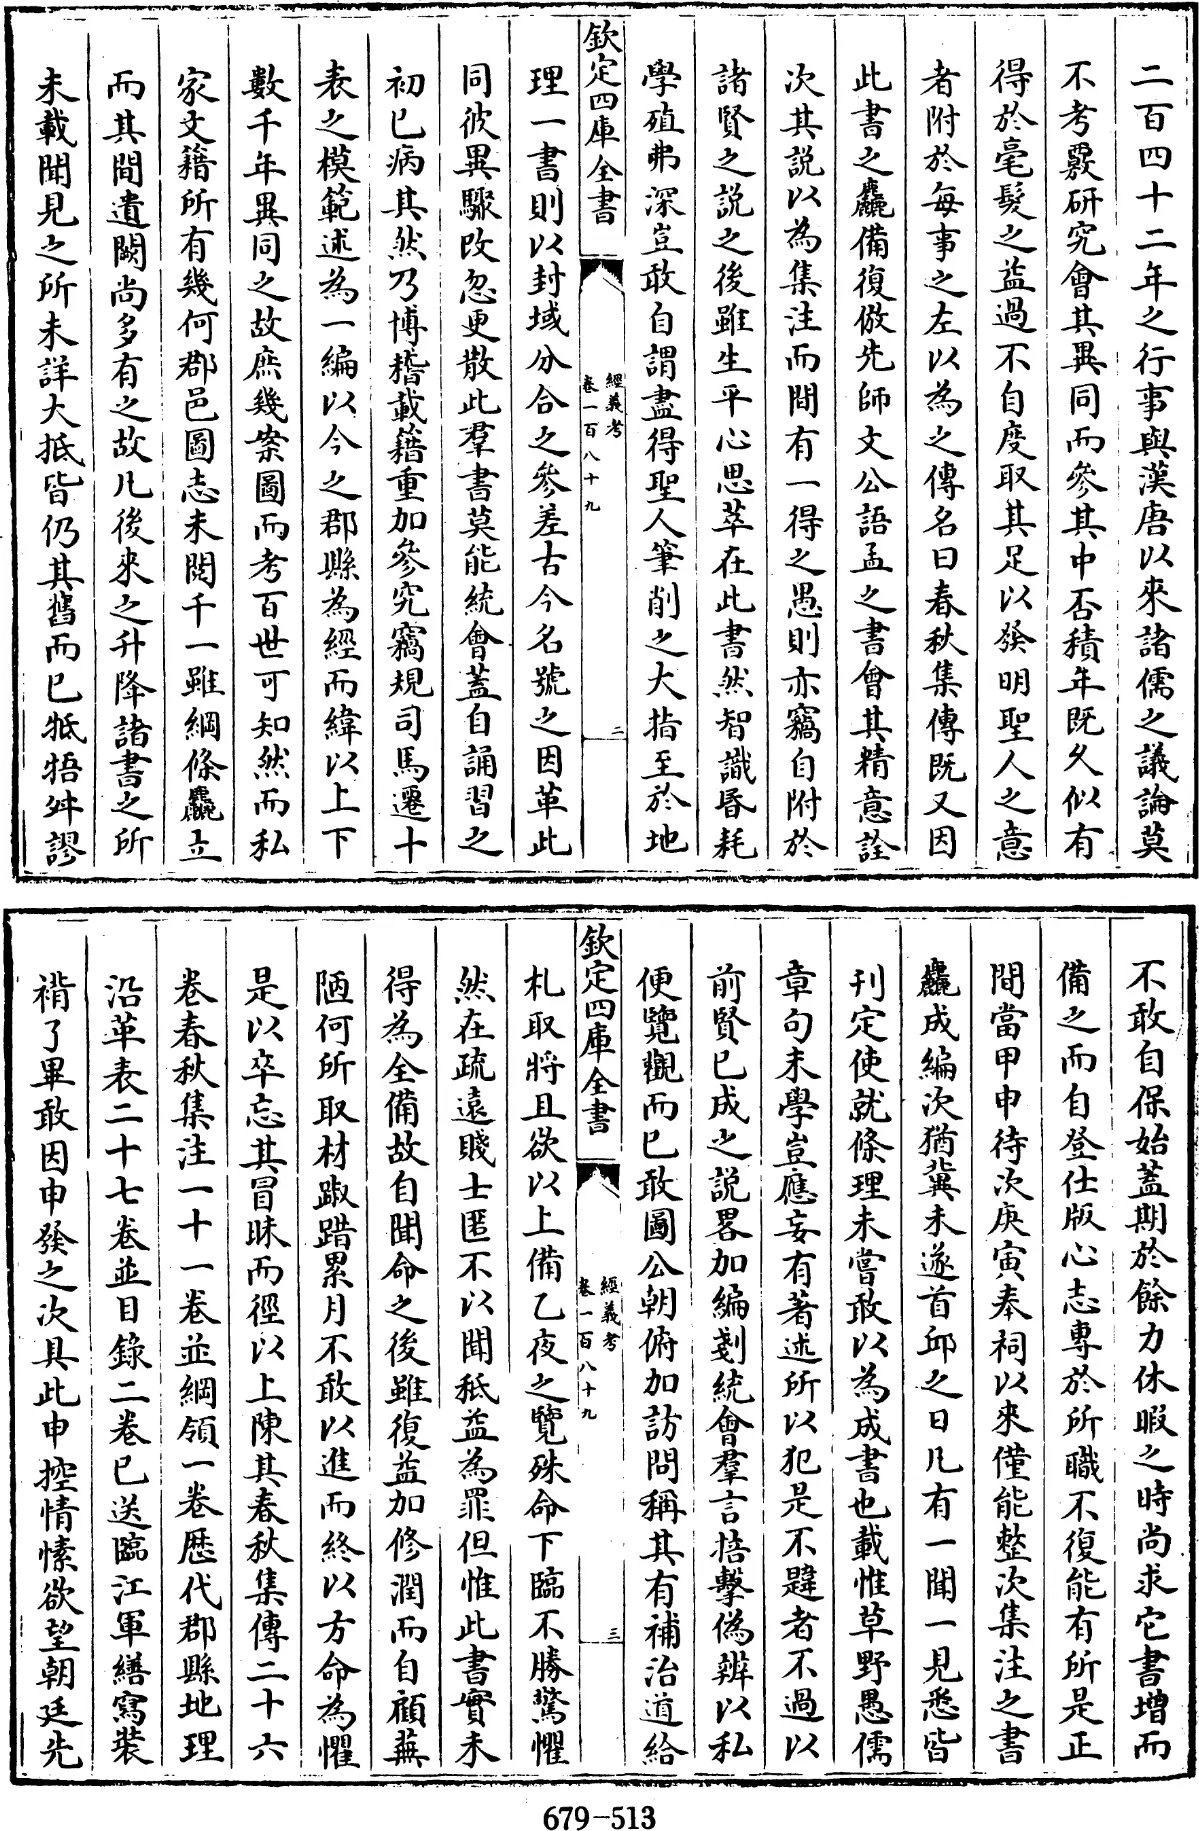 二百四十二年之行事與漢唐以來諸儒之議論莫
不考覈研究會其異同而參其中否積年既久似有
得於毫髮之益過不自度取其足以發明聖人之意
者附於每事之左以為之傳名曰春秋集傳既又因
此書之麤備復倣先師文公語孟之書會其精意詮
次其説以為集注而間有一得之愚則亦竊自附於
諸賢之説之後雖生平心思萃在此書然智識昬耗
學殖弗深豈敢自謂盡得聖人筆削之大指至於地
欽定四庫全書
經義考
卷一百八十九
二
理一書則以封域分合之參差古今名號之因革此
同彼異驟改忽更散此羣書莫能統會蓋自誦習之
初已病其然乃博稽載籍重加參究竊規司馬遷十
表之模範述為一編以今之郡縣為經而緯以上下
數千年異同之故庶幾案圖而考百世可知然而私
家文籍所有幾何郡邑圖志未閲千一雖綱條麤立
而其間遺闕尚多有之故凡後來之升降諸書之所
未載聞見之所未詳大抵皆仍其舊而已牴牾舛謬
不敢自保始蓋期於餘力休暇之時尚求它書增而
備之而自登仕版心志專於所職不復能有所是正
間當甲申待次庚寅奉祠以來僅能整次集注之書
麤成編次猶冀未遂首邱之日凡有一聞一見悉皆
刋定使就條理未嘗敢以為成書也載惟草野愚儒
章句末學豈應妄有著述所以犯是不韙者不過以
前賢已成之説畧加編剗統會羣言掊擊偽辨以私
便覽觀而已敢圖公朝俯加訪問稱其有補治道給
欽定四庫全書
經義考
卷一百八十九
三
札取將且欲以上備乙夜之覽殊命下臨不勝驚懼
然在疏遠賤士匿不以聞秖益為罪但惟此書實未
得為全備故自聞命之後雖復益加修潤而自顧蕪
陋何所取材踧踖累月不敢以進而終以方命為懼
是以卒忘其冒昧而徑以上陳其春秋集傳二十六
卷春秋集注一十一卷並綱領一卷歴代郡縣地理
沿革表二十七卷並目錄二卷已送臨江軍繕寫裝
褙了畢敢因申發之次具此申控情愫欲望朝廷先
679-513